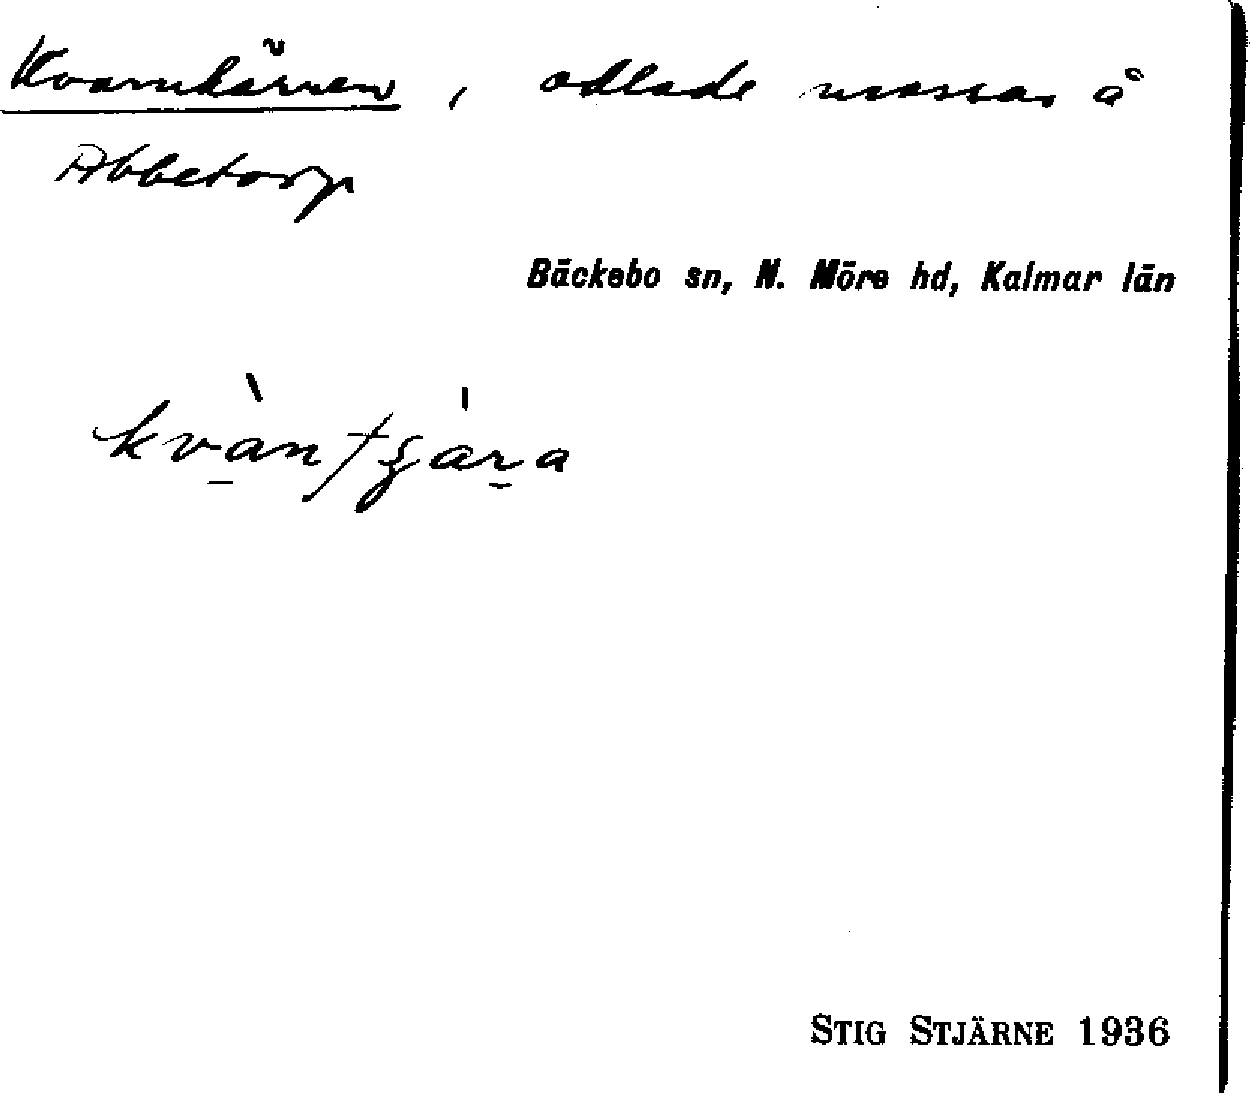 Kvarnkärren, odlade mossar å
Abbetorp
Bäckebo sn, N. Möre hd, Kalmar län
STIG STJÄRNE 1936